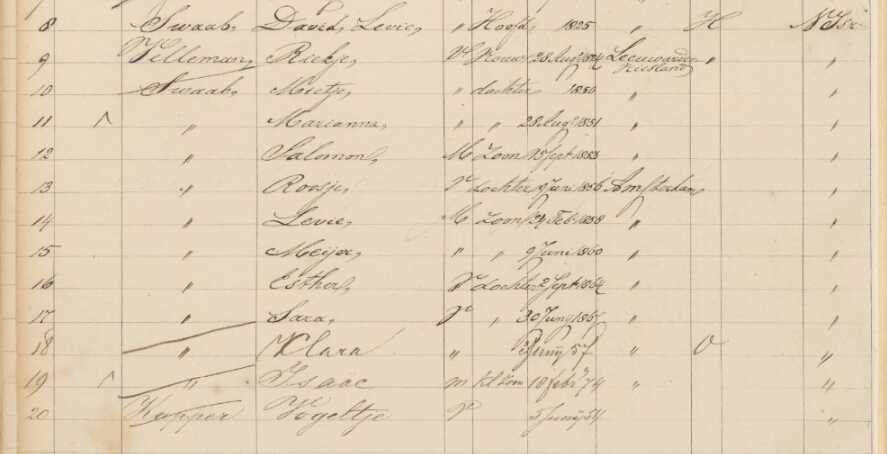 8 Swaab, David, Levie, " Hoofd 1825 H N Isr
9 Velleman, Riekje, V Vrouw 28 Aug 1824 Leeuwarden Friesland " "
10 Swaab, Mietje, " dochter 1850 " "
11 " Marianna, " " 28 Aug 1851 " "
12 " Salomon, M Zoon 15 Sept 1853 " "
13 " Roosje, V dochter 9 Juni 1856 Amsterdam "
14 " Levie, M Zoon 24 Feb 1858 " "
15 " Meijer, " " 9 Juni 1860 " "
16 " Esther, V dochter 2 Sept 1864 " "
17 " Sara, V " 30 Juny 1867 " "
18 " Klara " Junij 57 " O "
19 " Isaac m kl zoon 18 Febr 74 " "
20 Kupper Vogeltje V 5 Junij 54 "